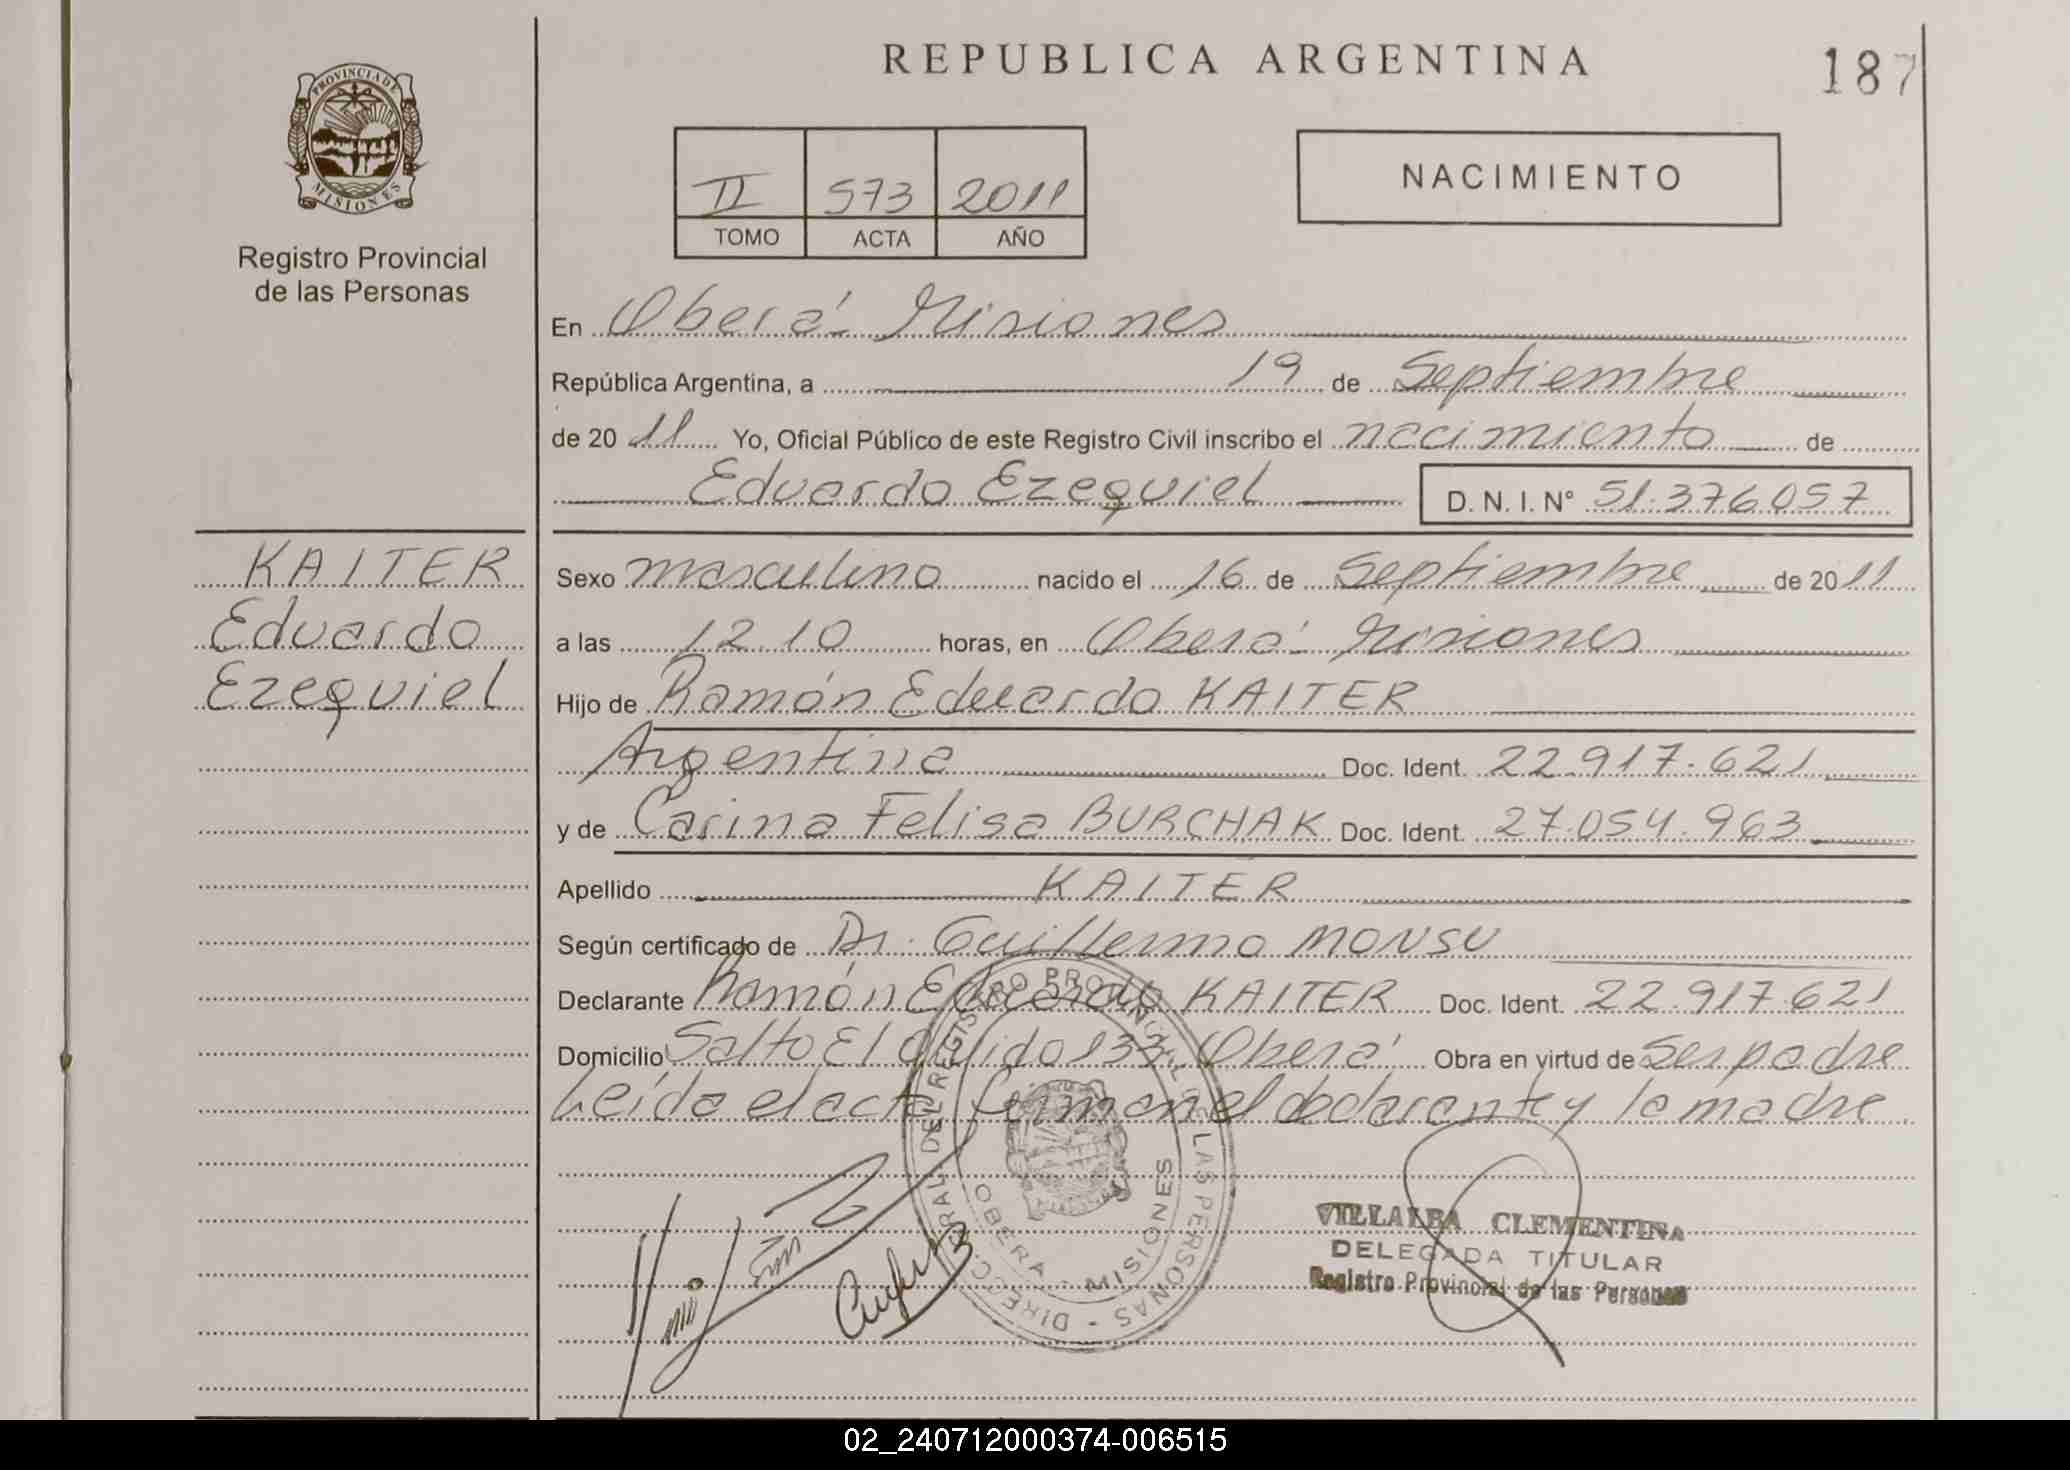 REPUBLICA ARGENTINA
187
PROVINCIA DE
MISIONES
Registro Provincial
de las Personas
II 573 2011
TOMO ACTA AÑO
NACIMIENTO
En Oberá Misiones
República Argentina, a 19 de Septiembre
de 2011 Yo, Oficial Público de este Registro Civil inscribo el nacimiento de
Eduardo Ezequiel D. N. I. N° 51.376.057
KAITER
Eduardo
Ezequiel
Sexo masculino nacido el 16 de Septiembre de 2011
a las 12.10 horas, en Oberá Misiones
Hijo de Ramón Eduardo KAITER
Argentina Doc. Ident. 22.917.621
y de Carina Felisa BURCHAK Doc. Ident. 27.054.963
Apellido KAITER
Según certificado de Dr. Guillermo MONSU
Declarante Ramón Eduardo KAITER Doc. Ident. 22.917.621
Domicilio Salto El 133 Oberá Obra en virtud de Ser padre
Leída el acta firman el declarante y la madre
DIRECC. GRAL. DEL REGISTRO PROVINCIAL DE LAS PERSONAS -
OBERA - MISIONES
VILLALBA CLEMENTINA
DELEGADA TITULAR
Registro Provincial de las Personas
02_240712000374-006515